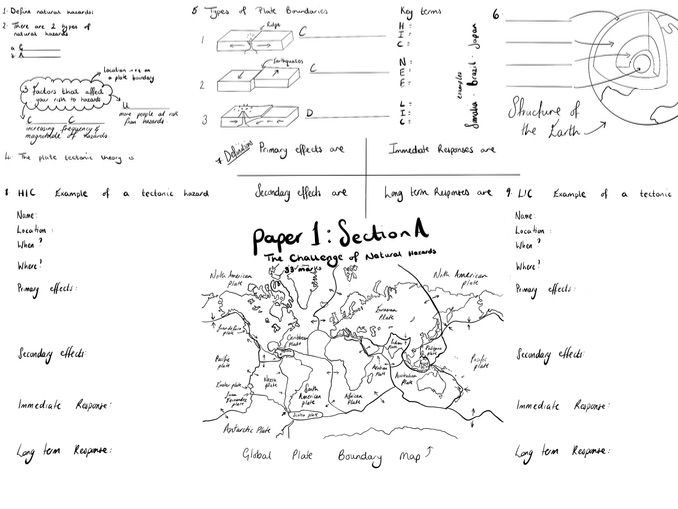 1. Define natural hazards:
2. There are 2 types of
natural hazards
a. G
b. A
Location - eg on
a plate boundary
3 factors that affect
your risk to hazards
U
more people at risk
from hazards
C C
increasing frequency &
magnitude of hazards
4. The plate tectonic theory is
5 Types of Plate Boundaries
Ridge
1 C
Earthquakes
2 C
3 D
Key terms
H :
I :
C :
N :
E :
E :
L :
I :
C :
examples
Somalia · Brazil · Japan
6
Structure of
the Earth
7 Definitions
Primary effects are
Immediate Responses are
Secondary effects are
Long term Responses are
8 HIC Example of a tectonic hazard
Name:
Location :
When ?
Where?
Primary effects:
Secondary effects:
Immediate Response:
Long term Response:
Paper 1: Section A
The Challenge of Natural Hazards
33 marks
North American
Plate
North American
plate
Eurasian
Plate
Juan de Fuca
plate
Caribbean
Plate
Pacific
plate
Nazca
plate
Easter plate
Juan
Fernandez
plate
South
American
plate
African
Plate
Arabian
Plate
Indian
Plate
Philippine
plate
Australian
Plate
Pacific
plate
Scotia plate
Antarctic Plate
Global Plate Boundary Map
9. LIC Example of a tectonic
Name:
Location :
When ?
Where?
Primary effects :
Secondary effects:
Immediate Response:
Long term Response: